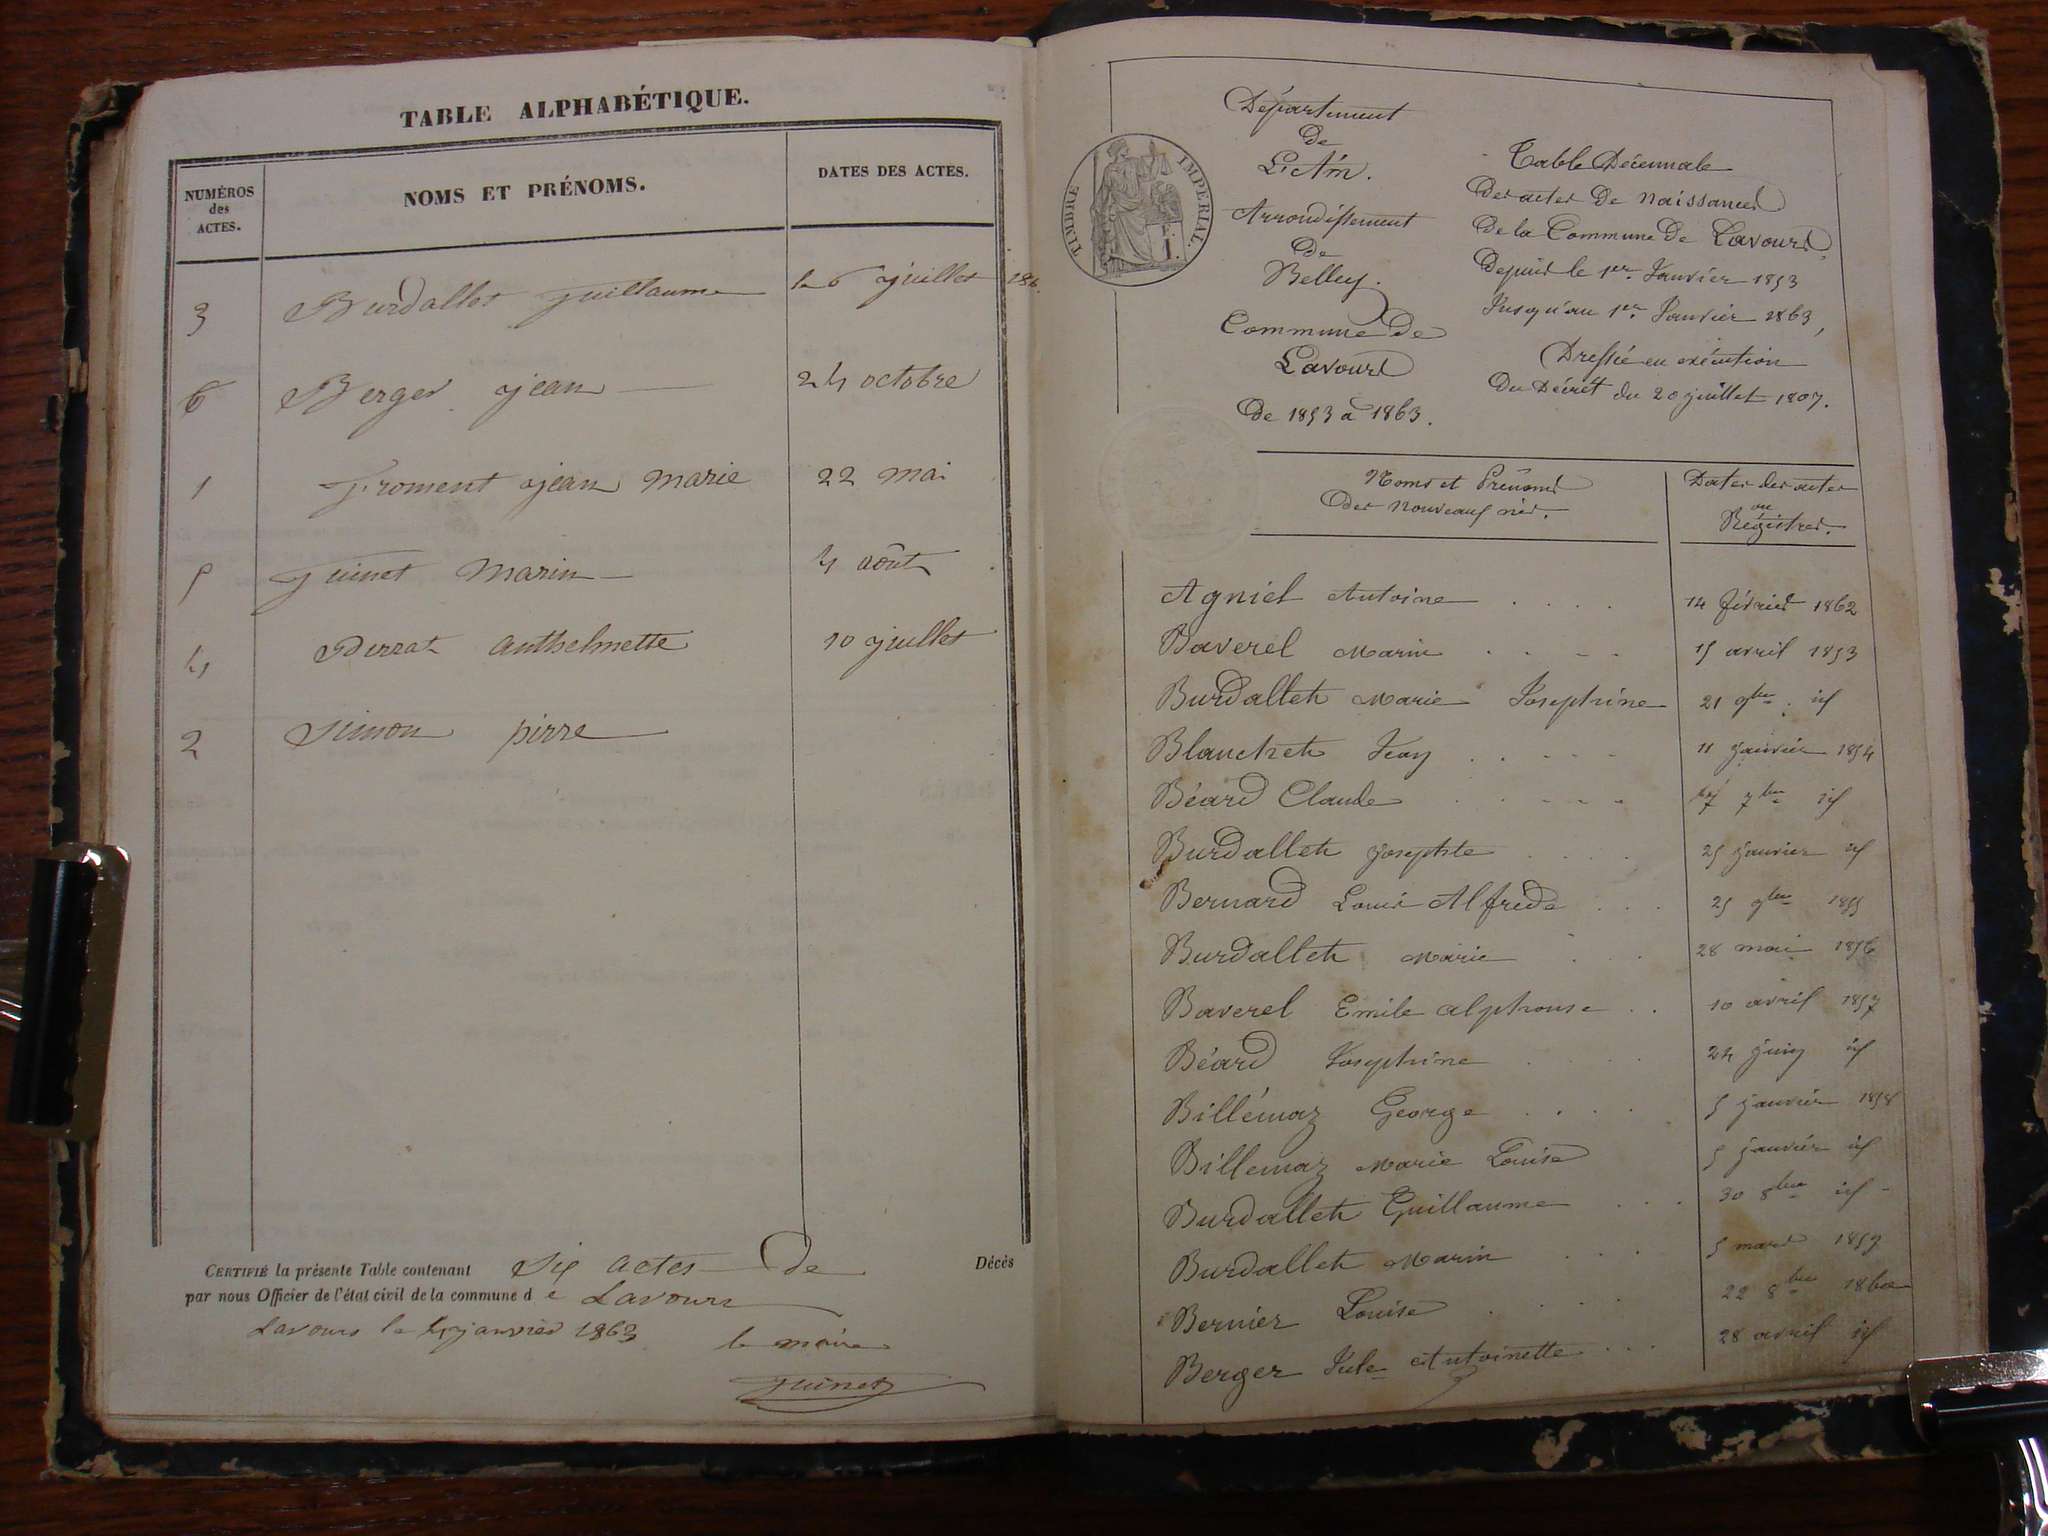 TABLE ALPHABÉTIQUE.
NUMÉROS des ACTES.
NOMS ET PRÉNOMS.
DATES DES ACTES.
3 Burdallet guillaume le 6 juillet 186
6 Berger jean 24 octobre
1 froment jean marie 22 mai
5 guinet Marin 4 août
4 Perrat anthelmette 10 juillet
2 Simon pirre
CERTIFIÉ la présente Table contenant Six actes de Décès
par nous Officier de l'état civil de la commune d e Lavours
Lavours le 4 janvier 1863
le maire
guinet
Département
de
L'Ain.
Arrondissement
de
Belley.
Commune De
Lavours
De 1853 à 1863.
TIMBRE IMPERIAL.
Table Décennale
Des actes De Naissances
De la Commune De Lavours,
Depuis le 1er. Janvier 1853
Jusqu'au 1er. Janvier 1863,
Dressée en exécution
Du Décrêt du 20 juillet 1807.
Noms et Prénoms
Des Nouveaux nés.
Dates des actes
ou
Régistres.
Agniel Antoine 14 février 1862
Baverel Marin 15 avril 1853
Burdallet Marie Josephine 21 9bre id
Blanchet Jean 11 janvier 1854
Béard Claude 7bre id
Burdallet Josephte 25 janvier id
Bernard Louis Alfrede 25 9bre 1855
Burdallet Marie 28 mai 1856
Baverel Emile alphonse 10 avril 1857
Béard Josephine 24 juin id
Billémaz George 5 janvier 1858
Billemaz Marie Louise 5 janvier id
Burdallet Guillaume 30 8bre id
Burdallet Marin 5 mars 1859
Bernier Louise 22 8bre 1860
Berger Jule Antoinette 28 avril id